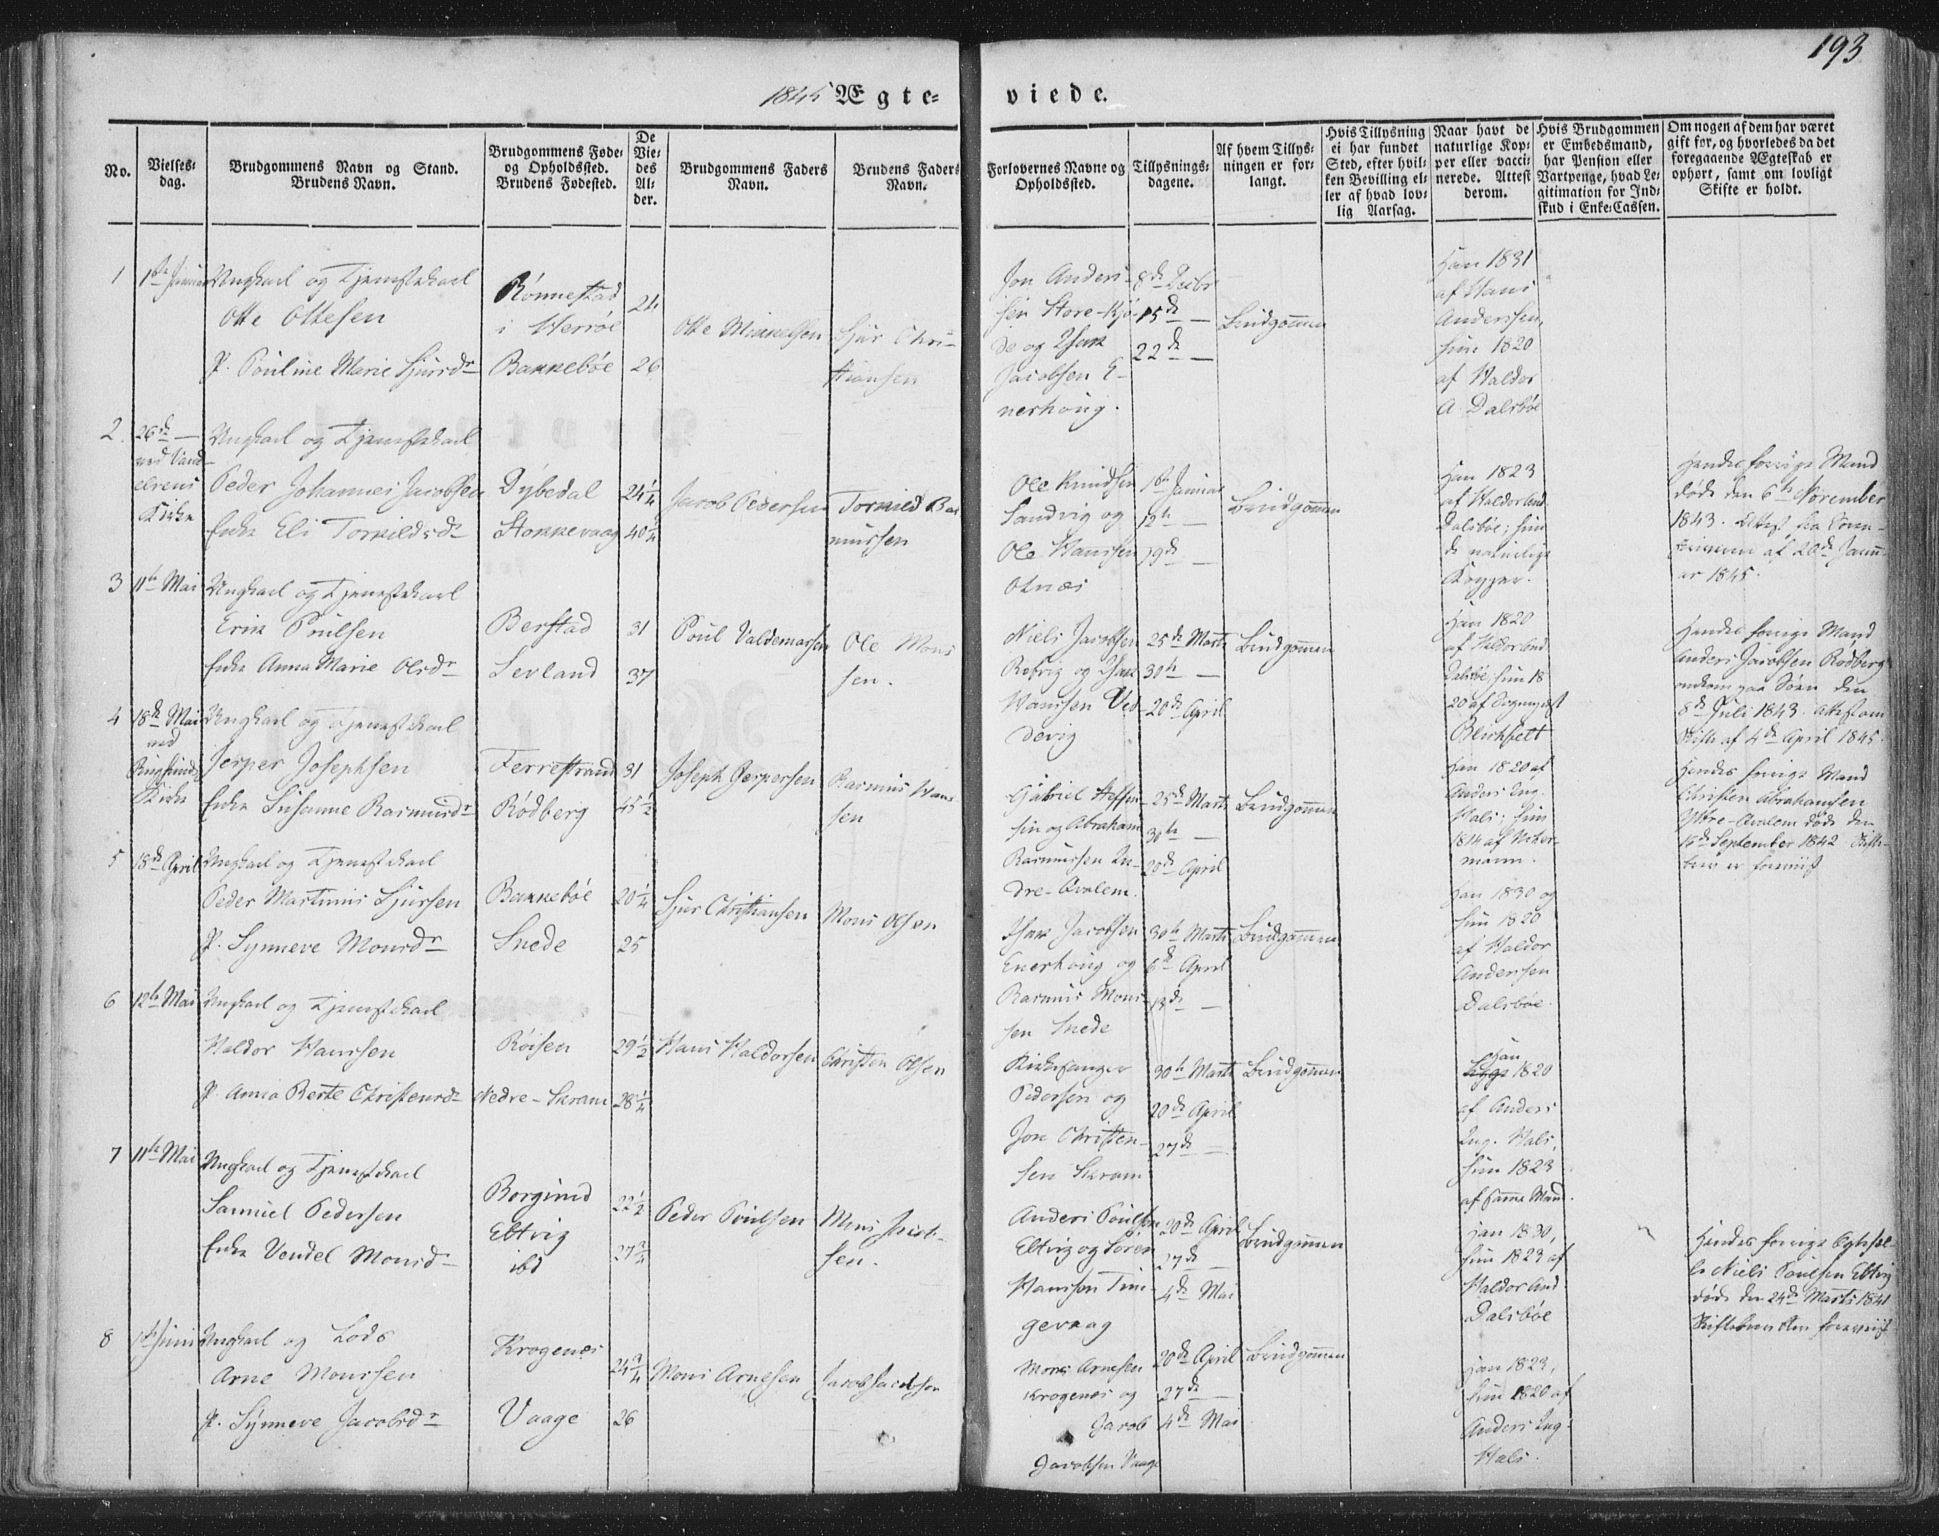 193
1845 Ægte- viede.
No.
Vielses-
dag.
Brudgommens Navn og Stand.
Brudens Navn.
Brudgommens Føde-
og Opholdssted.
Brudens Fødested.
De
Vie-
des
Al-
der.
Brudgommens Faders
Navn.
Brudens Faders
Navn.
Forlovernes Navne og
Opholdssted.
Tillysnings-
dagene.
Af hvem Tillys-
ningen er for-
langt.
Hvis Tillysning
ei har fundet
Sted, efter hvil-
ken Bevilling el-
ler af hvad lov-
lig Aarsag.
Naar havt de
naturlige Kop-
per eller vacci-
nerede. Attest
derom.
Hvis Brudgommen
er Embedsmand,
har Pension eller
Vartpenge, hvad Le-
gitimation for Ind-
skud i Enke-Cassen.
Om nogen af dem har været
gift før, og hvorledes da det
foregaaende Ægteskab er
ophørt, samt om lovligt
Skifte er holdt.
1
1ste Januar
Ungkarl og Tjenestekarl
Otte Ottesen
P. Pouline Marie Sjursdr
Rønnestad
i Herrøe
Bakkebøe
24
26
Otte Mikkelsen
Sjur Chri-
stiansen
Jon Anders-
sen Store-Kjø-
de og Isak
Jacobsen E-
nerhoug.
8de Decbr
15de —
22de —
Brudgommen
Han 1831
af Hans
Anderssen,
hun 1820
af Haldor
A. Dalsbøe
2.
26de —
ved Vand-
elvens
Kirke
Ungkarl og Tjenestekarl
Peder Johannes Jacobsen
Enke Eli Torkildsdr
Dybedal
Stokkevaag
24 1/4
40 3/4
Jacob Pedersen
Torkild Ras-
mussen
Ole Knudsen
Sandvig og
Ole Hanssen
Otnæs
1ste Januar
12te —
19de —
Brudgommen
Han 1823
af Haldor And.
Dalsbøe; hun
de naturlige
Kopper.
Hendes forrige Mand
døde den 6te November
1843. Attest fra Soren-
skriveren af 20de Janu-
ar 1845.
3
11te Mai
Ungkarl og Tjenestekarl
Erik Poulsen
Enke Anna Marie Olsdr
Berstad
Sevland
31
37
Poul Valdemarsen
Ole Mons-
sen.
Niels Jacobsen
Refvig og Isak
Hanssen Ved-
devig
25de Marts
30te —
20de April
Brudgommen
Han 1820
af Haldor And.
Dalsbøe; hun 18
20 af Sognepræst
Blichfelt
Hendes forrige Mand
Anders Jacobsen Rødberg
omkom paa Søen den
8de Juli 1843. Attest om
Skifte af 4de April 1845.
4
18de Mai
ved
Kirke
Ungkarl og Tjenestekarl
Jesper Josephsen
Enke Susanne Rasmusdr
Ferrestrand
Rødberg
31
45 1/2
Joseph Jespersen
Rasmus Hans-
sen
Gabriel Steffen-
sen og Abraham
Rasmussen In-
dre-Qvalem.
25de Marts
30te —
20de April
Brudgommen
Han 1820 af
Anders Ing.
Hals; hun
1814 af Acker-
mann.
Hendes forrige Mand
Christen Abrahamsen
Ydre-Qvalem døde den
16de September 1842. Skifte-
brev er foreviist
5
18de April
Ungkarl og Tjenestekarl
Peder Martinus Sjursen
P. Synneve Monsdr
Bakkebøe
Snede
20 1/4
25
Sjur Christiansen
Mons Olsen
Isak Jacobsen
Enerhoug og
Rasmus Mons-
sen Snede
30te Marts
6te April
13de —
Brudgommen
Han 1830 og
hun 1820
af Haldor
Anderssen
Dalsbøe.
6
12te Mai
Ungkarl og Tjenestekarl
Haldor Hanssen
P. Anna Berte Christensdr
Røisen
Nedre-Skram
29 1/2
28 1/4
Hans Haldorsen
Christen Olsen
Kirkesanger
Pedersen og
Jon Christen-
sen Skram
30te Marts
20de April
27de —
Brudgommen
Han
1820
af Anders
Ing. Hals,
hun 1823
af samme Mand.
7
11te Mai
Ungkarl og Tjenestekarl
Samuel Pedersen
Enke Vendel Monsdr
Borgund
Eltvig
ibd
22 1/2
27 3/4
Peder Poulsen
Mons Jacob-
sen.
Anders Poulsen
Eltvig og Søren
Hanssen Tun-
gevaag
20de April
27de —
4de Mai
Brudgommen
Han 1830,
hun 1823 af
Haldor And.
Dalsbøe
Hendes forrige Ægtefæl-
le Niels Poulsen Eltvig
døde den 24de Marts 1841
8
Juni
Ungkarl og Lods
Arne Monssen
P. Synneve Jacobsdr
Krogenæs
Vaage
24 3/4
26
Mons Arnesen
Jacob Jacobsen
Mons Arnesen
Krogenæs og
Jacob
Jacobsen Vaage
20de April
27de —
4de Mai
Brudgommen
Han 1823,
hun 1820 af
Anders Ing.
Hals.